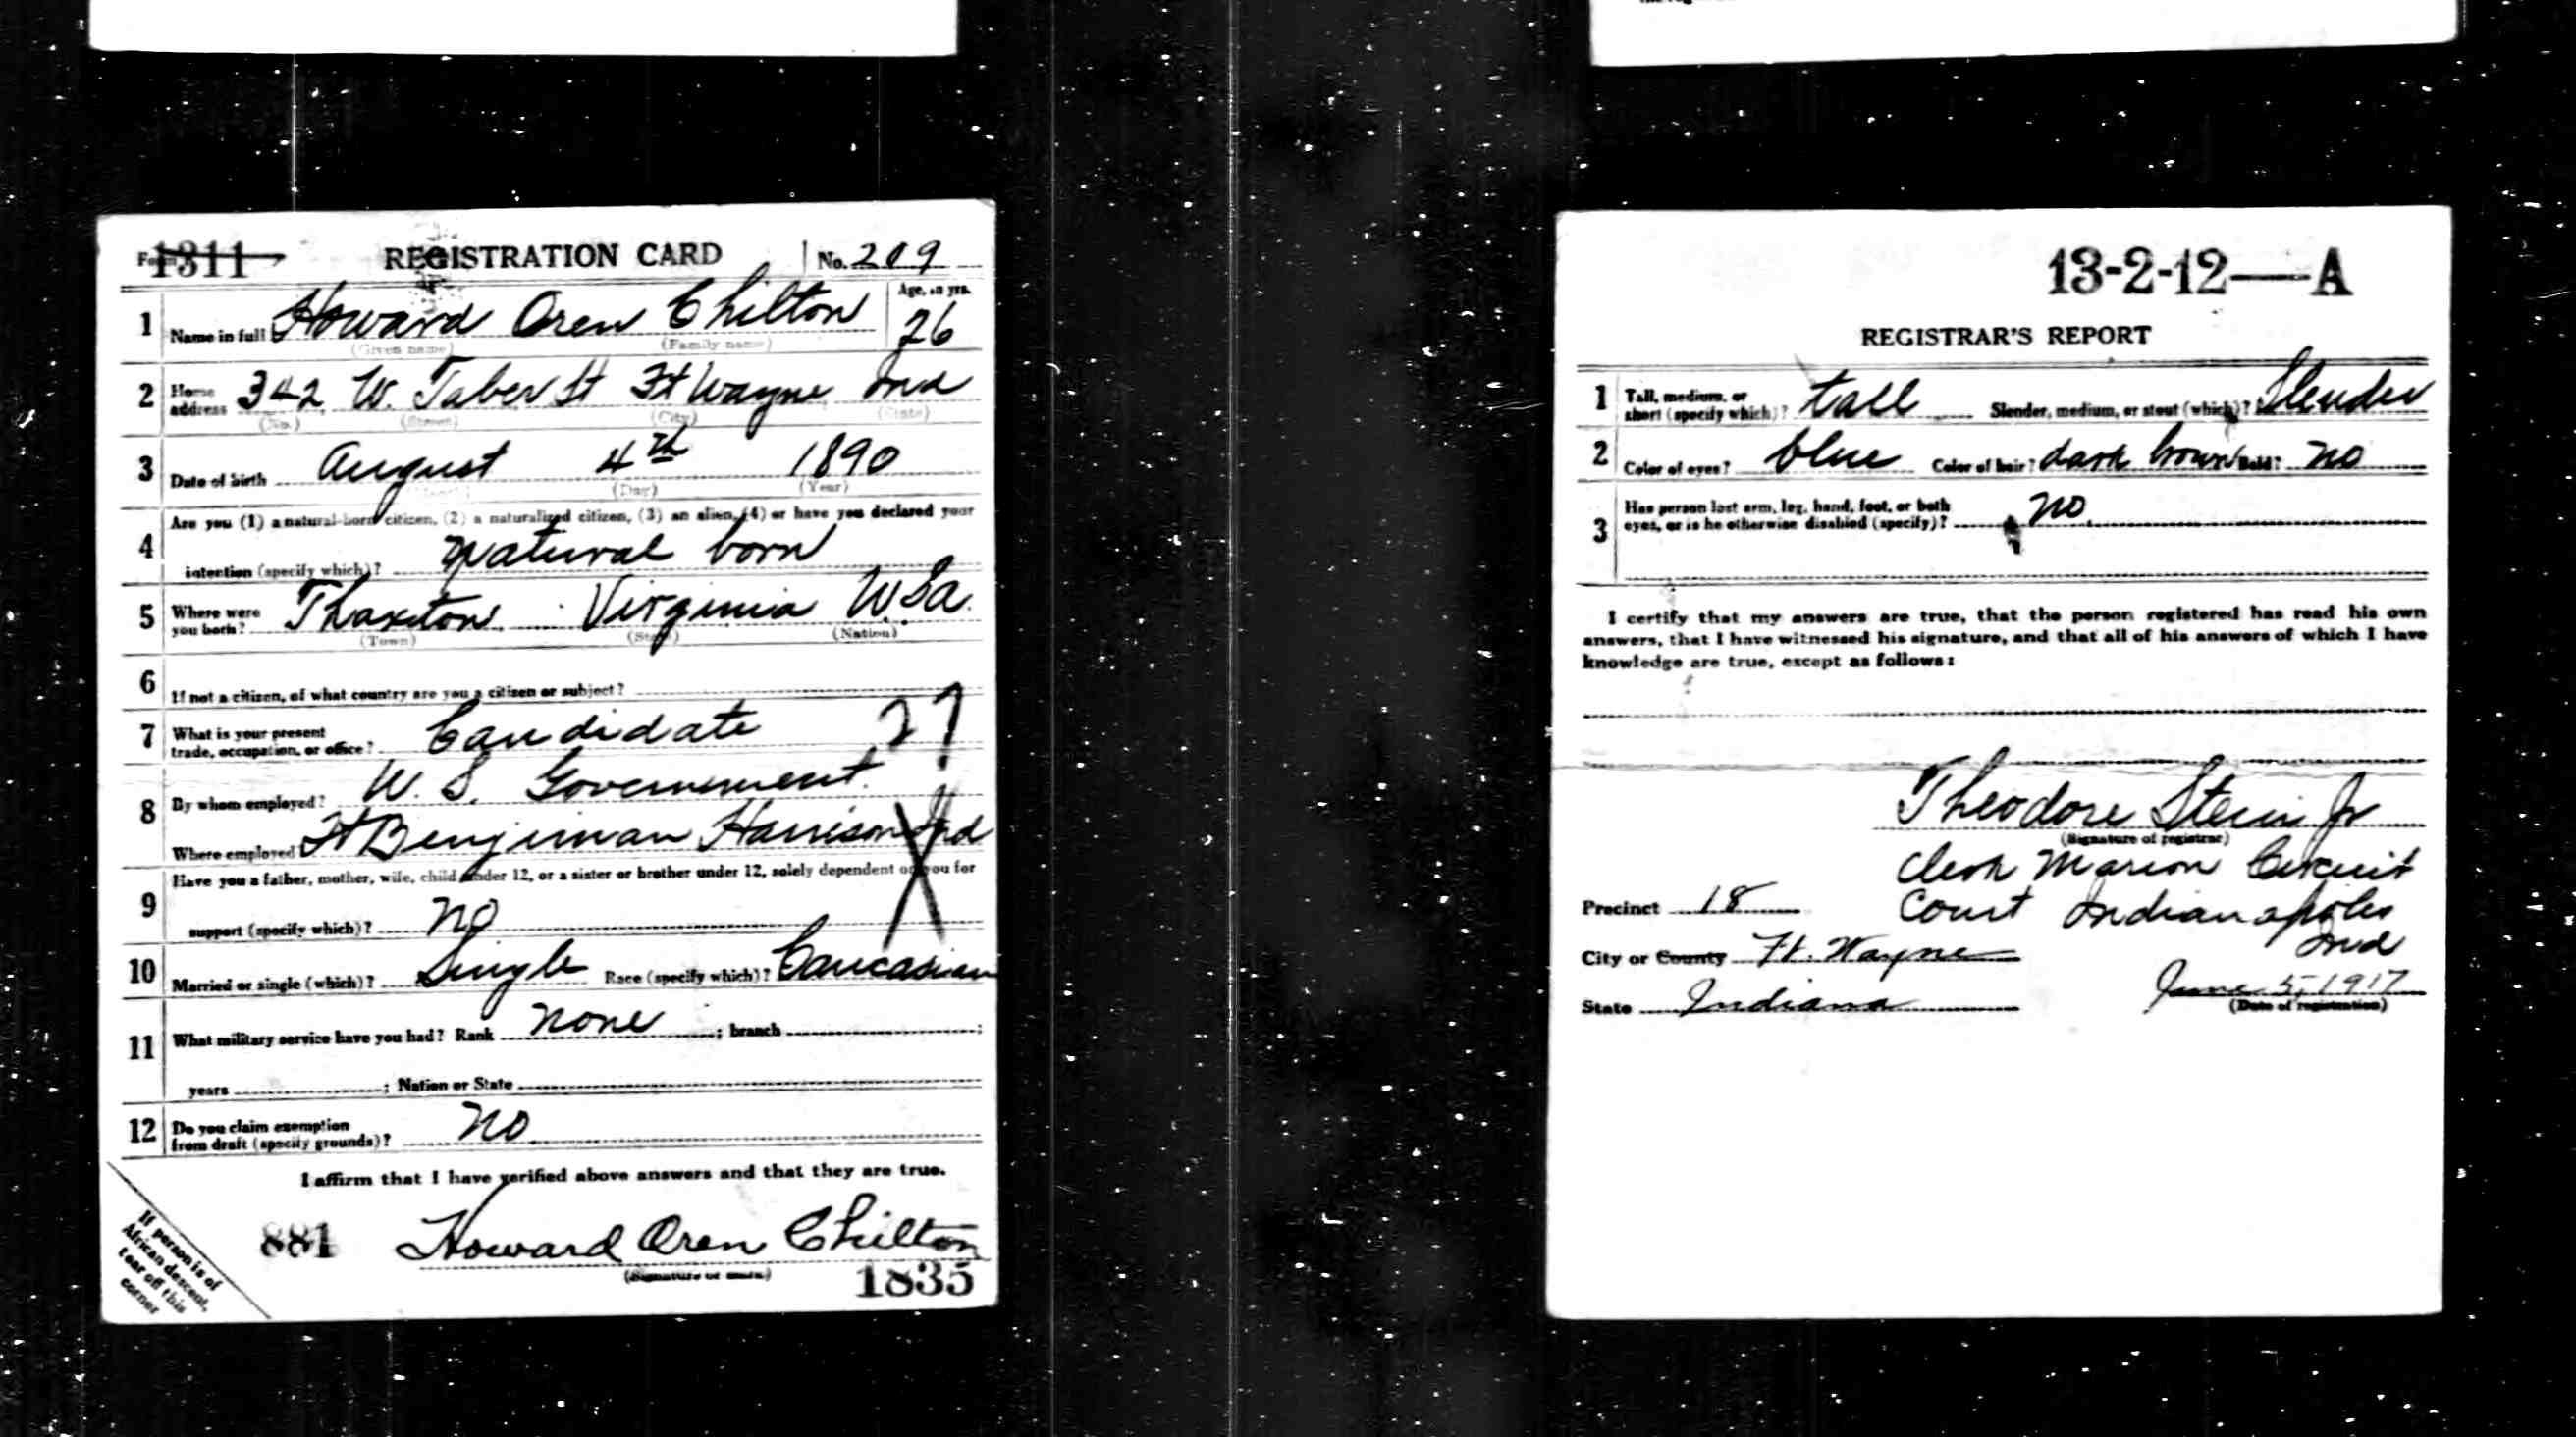 Form 1311 REGISTRATION CARD No. 209
1 Name in full Howard Oren Chilton Age, in yrs. 26
(Given name) (Family name)
2 Home address 342 W. Taber St Ft Wayne Ind
(No.) (Street) (City) (State)
3 Date of birth August 4th 1890
(Day) (Year)
Are you (1) a natural-born citizen, (2) a naturalized citizen, (3) an alien, (4) or have you declared your
4 intention (specify which)? Natural born
5 Where were you born? Thaxton Virginia U.S.a.
(Town) (State) (Nation)
6 If not a citizen, of what country are you a citizen or subject?
7 What is your present trade, occupation, or office? Candidate 27
8 By whom employed? U. S. Government.
Where employed Ft Benjiman Harrison Ind
Have you a father, mother, wife, child under 12, or a sister or brother under 12, solely dependent on you for
9 support (specify which)? No
10 Married or single (which)? Single Race (specify which)? Caucasian
11 What military service have you had? Rank none ; branch ;
years ; Nation or State
12 Do you claim exemption from draft (specify grounds)? No
I affirm that I have verified above answers and that they are true.
881 Howard Oren Chilton
(Signature or mark)
1835
If person is of
African descent,
tear off this
corner
13-2-12—A
REGISTRAR'S REPORT
1 Tall, medium, or short (specify which)? tall Slender, medium, or stout (which)? Slender
2 Color of eyes? blue Color of hair? dark brown Bald? no
3 Has person lost arm, leg, hand, foot, or both
eyes, or is he otherwise disabled (specify)? no
I certify that my answers are true, that the person registered has read his own
answers, that I have witnessed his signature, and that all of his answers of which I have
knowledge are true, except as follows:
Theodore Stein Jr
(Signature of registrar)
Clerk Marion Circuit
Precinct 18 Court Indianapolis
Ind
City or County Ft. Wayne
State Indiana June 5, 1917
(Date of registration)